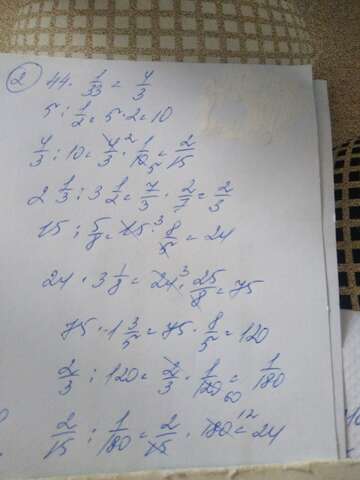 ② 44 · 1/33 = 4/3
5 : 1/2 = 5 · 2 = 10
4/3 : 10 = 4/3 · 1/10 = 2/15
2 1/3 : 3 1/2 = 7/3 · 2/7 = 2/3
15 : 5/8 = 15 · 8/5 = 24
24 · 3 1/8 = 24 · 25/8 = 75
75 · 1 3/5 = 75 · 8/5 = 120
2/3 : 120 = 2/3 · 1/120 = 1/180
2/15 : 1/180 = 2/15 · 180 = 24